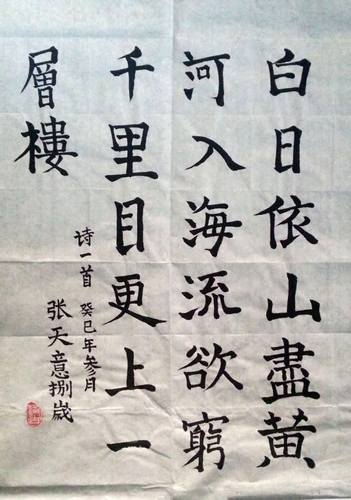 白日依山盡黃
河入海流欲窮
千里目更上一
層樓
诗一首 癸巳年参月
张天意捌歲